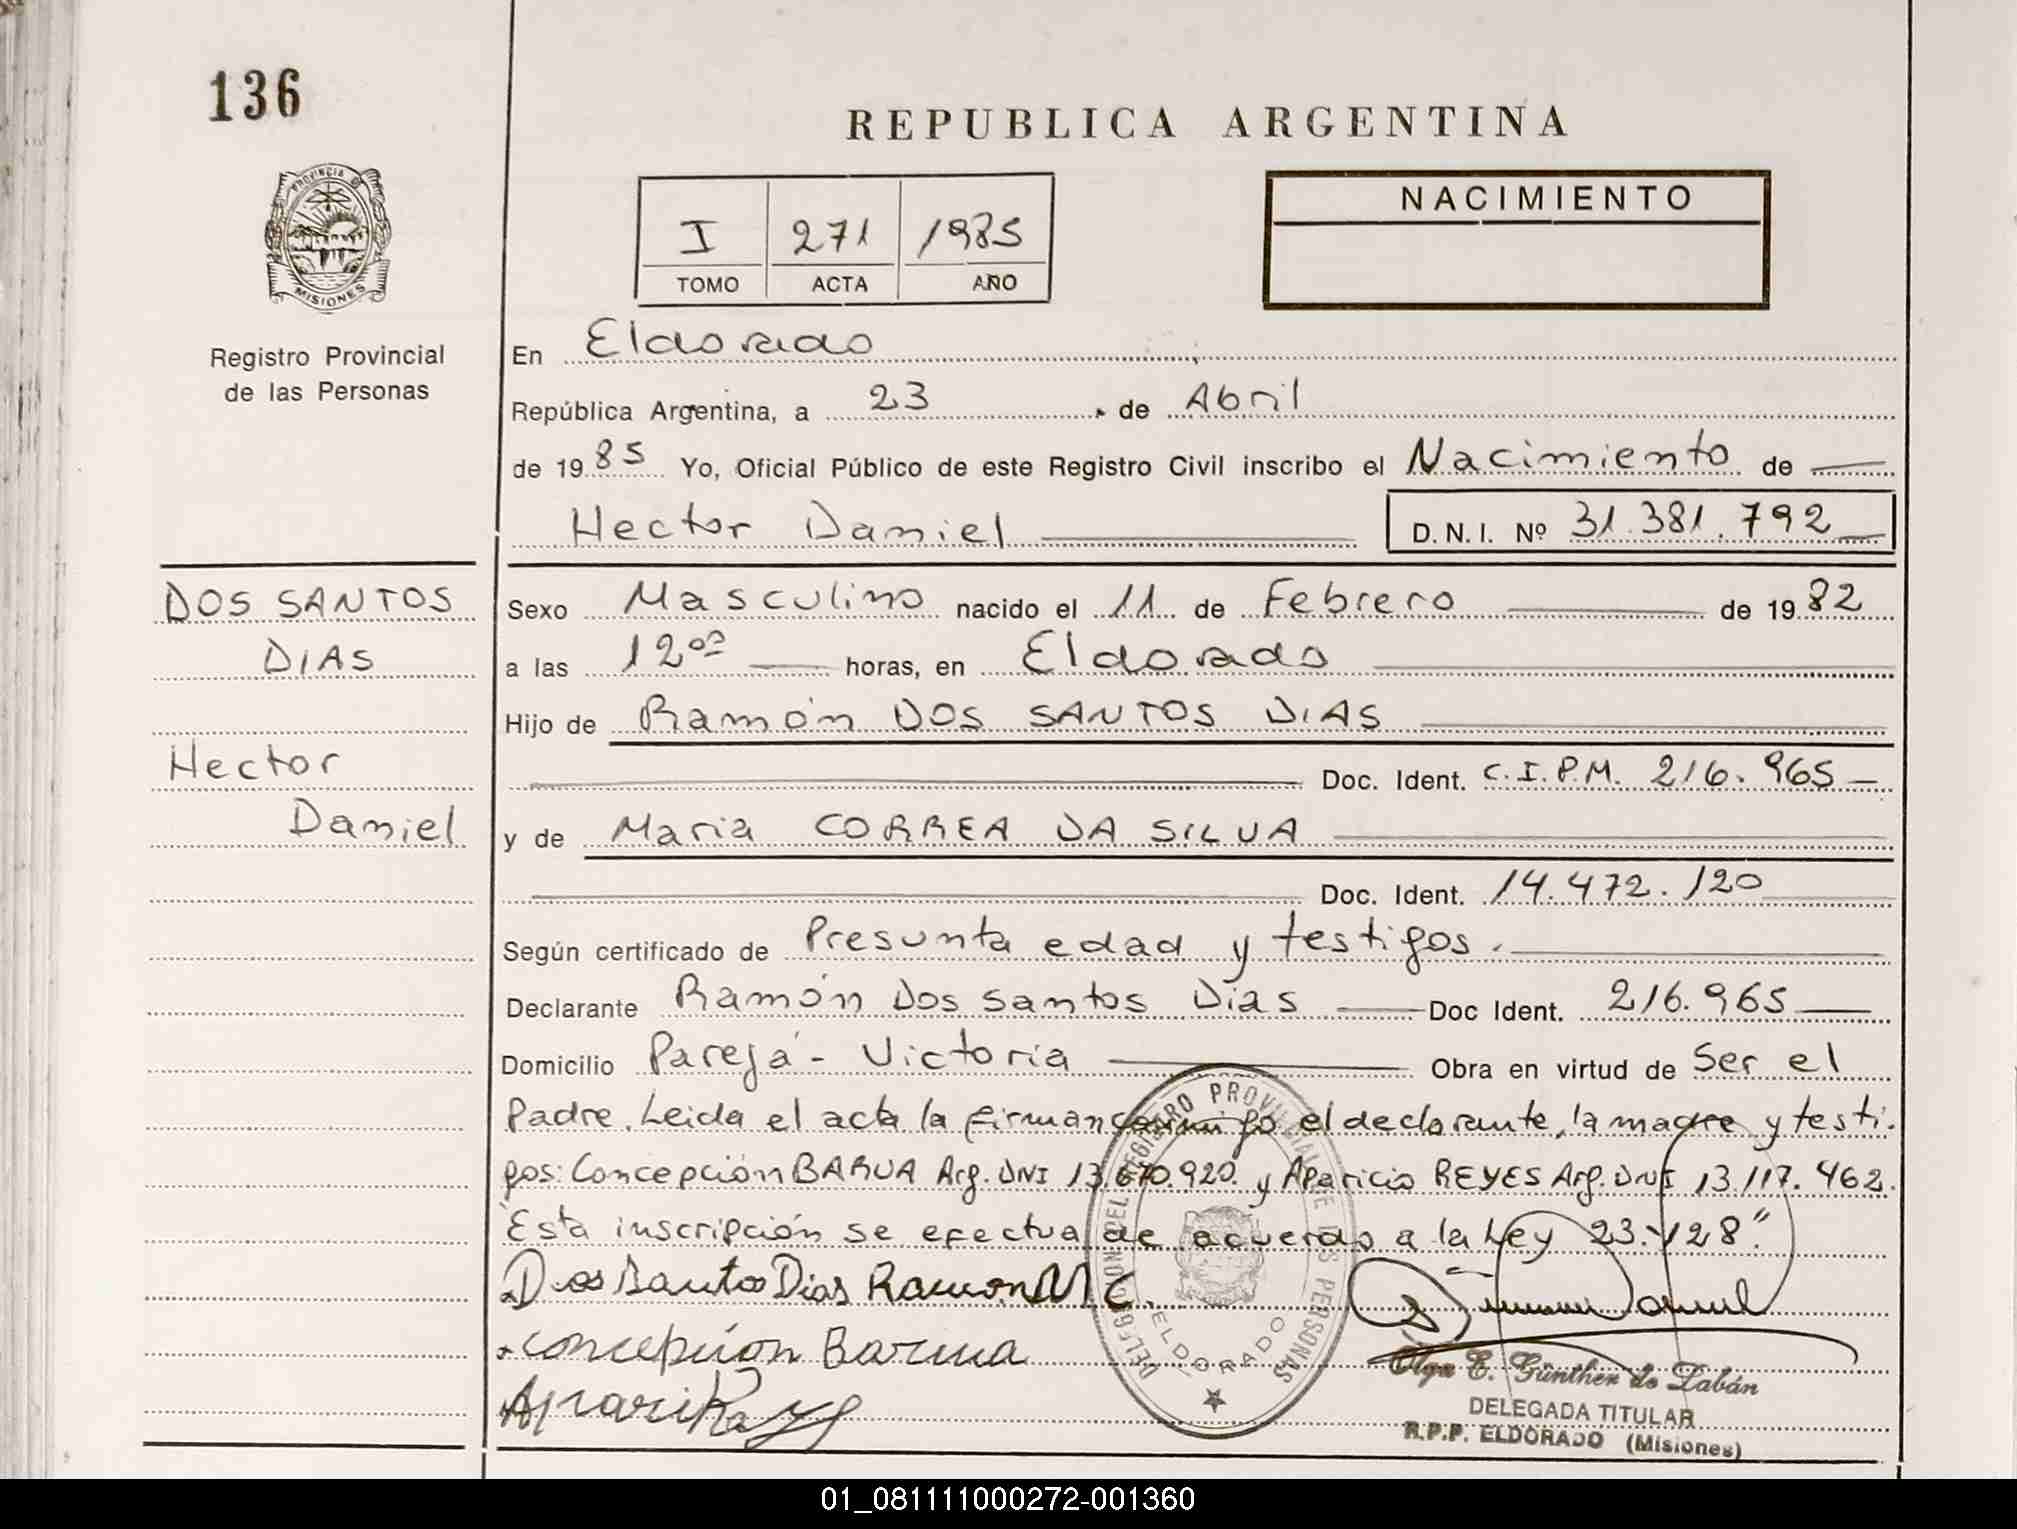 136
REPUBLICA ARGENTINA
PROVINCIA D
MISIONES
Registro Provincial
de las Personas
I 271 1985
TOMO ACTA AÑO
NACIMIENTO
En Eldorado
República Argentina, a 23 de Abril
de 1985 Yo, Oficial Público de este Registro Civil inscribo el Nacimiento de
Hector Daniel D.N.I. Nº 31.381.792
DOS SANTOS
DIAS
Hector
Daniel
Sexo Masculino nacido el 11 de Febrero de 1982
a las 12⁰⁰ horas, en Eldorado
Hijo de Ramón DOS SANTOS DIAS
Doc. Ident. C.I.P.M. 216.965
y de Maria CORREA DA SILVA
Doc. Ident. 14.472.120
Según certificado de Presunta edad y testigos.
Declarante Ramón Dos Santos Dias Doc Ident. 216.965
Domicilio Pareja - Victoria Obra en virtud de Ser el
Padre. Leida el acta la firman conmigo el declarante, la madre y testi-
gos: Concepción BARUA Arg. DNI 13.670.920. y Aparicio REYES Arg. DNI 13.117.462.
"Esta inscripción se efectua de acuerdo a la Ley 23.128".
Dos Santos Dias Ramon M C.
Concepción Barua
DELEGACION DEL REGISTRO PROVINCIAL DE LAS PERSONAS
ELDORADO
Olga E. Günther de Zabán
DELEGADA TITULAR
R.P.P. ELDORADO (Misiones)
01_081111000272-001360